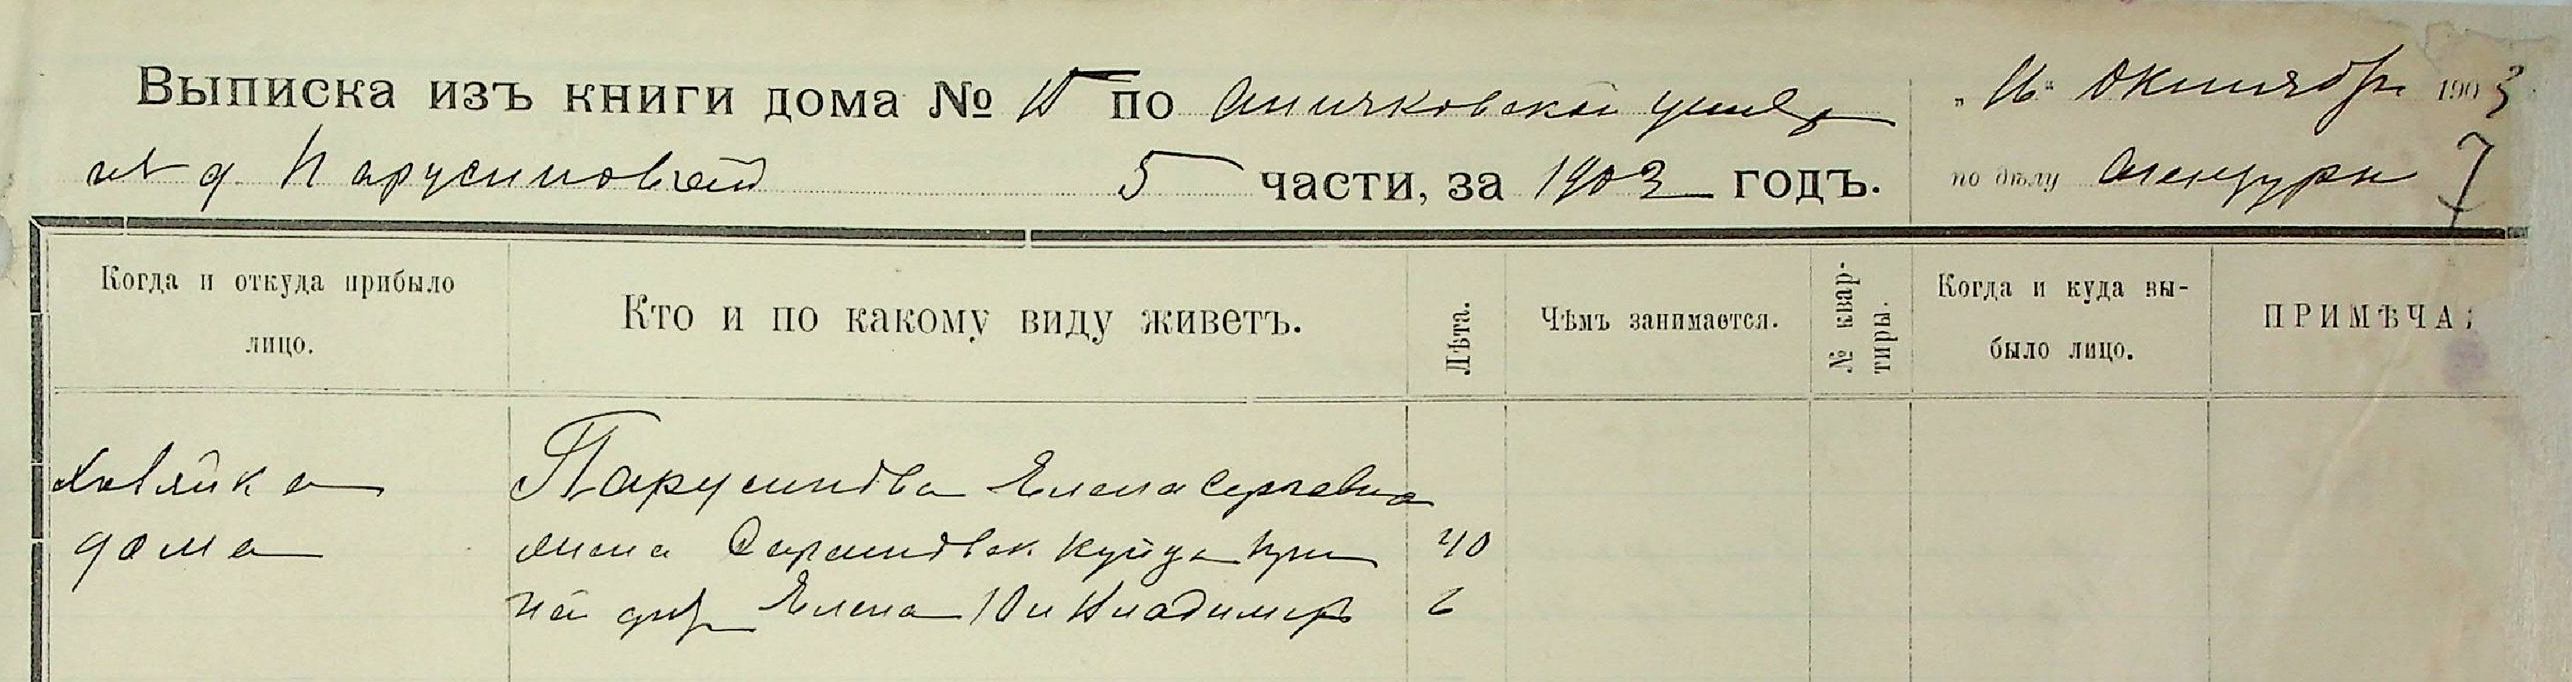 Выписка изъ книги дома № 15 по Аничковской улицѣ
въ д. Парусиновой 5 части, за 1903 годъ.
„16“ Октября 1903
по дѣлу 7
Когда и откуда прибыло
лицо.
Кто и по какому виду живетъ.
Лѣта.
Чѣмъ занимается.
№ квар-
тиры.
Когда и куда вы-
было лицо.
ПРИМѢЧА
Хозяйка Парусинова Елена Сергѣевна
дома жена Саратовск купца При 40
ней дѣти Елена 10 и Владимиръ 6